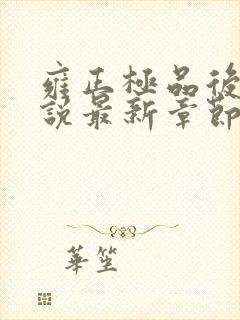 雍正極品後
說最新章節
華笙